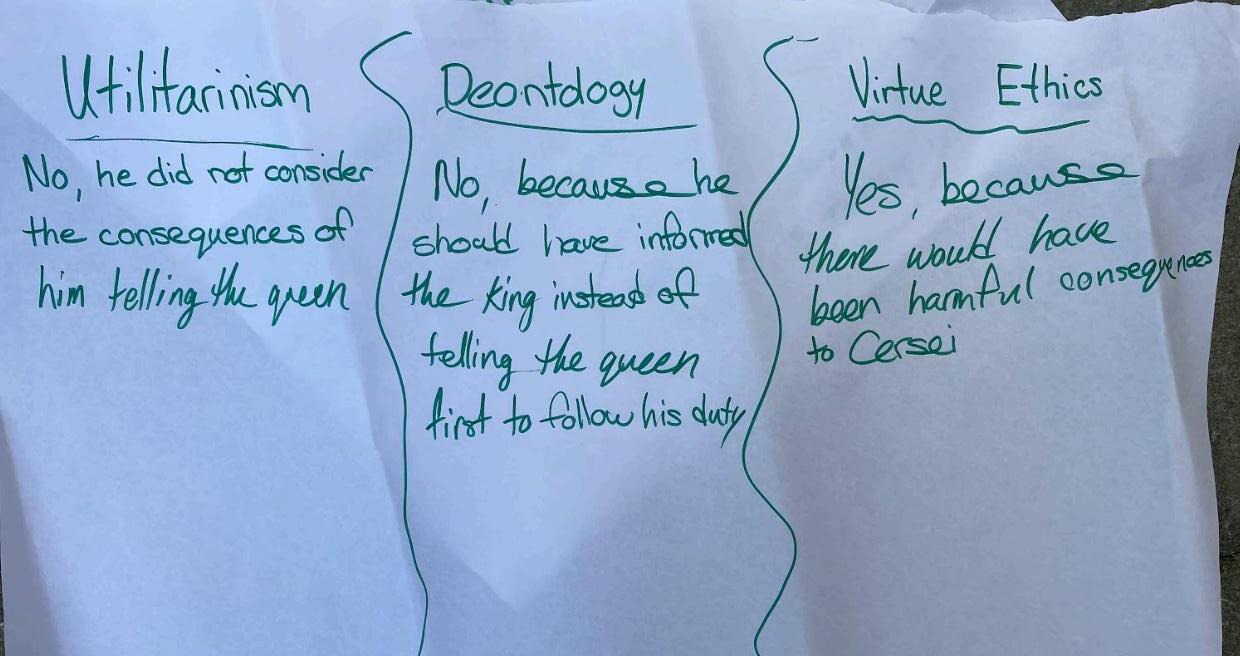 Utilitarinism
No, he did not consider
the consequences of
him telling the queen
Deontology
No, because he
should have informed
the King instead of
telling the queen
first to follow his duty
Virtue Ethics
Yes, because
there would have
been harmful consequences
to Cersei